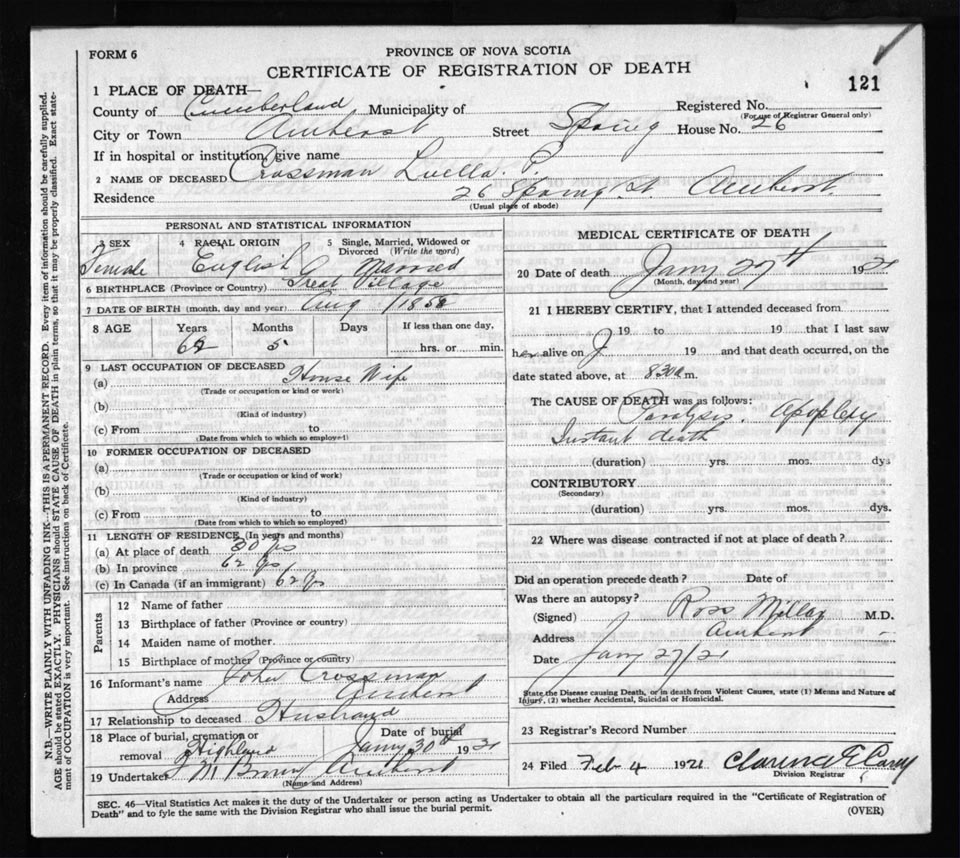 FORM 6
PROVINCE OF NOVA SCOTIA
CERTIFICATE OF REGISTRATION OF DEATH
121
1 PLACE OF DEATH—
County of Cumberland Municipality of Registered No.
(For use of Registrar General only)
City or Town Amherst Street Spring House No. 26
If in hospital or institution, give name
2 NAME OF DECEASED Crossman Luella P.
Residence 26 Spring St. Amherst
(Usual place of abode)
PERSONAL AND STATISTICAL INFORMATION
3 SEX 4 RACIAL ORIGIN 5 Single, Married, Widowed or Divorced (Write the word)
Female English Married
6 BIRTHPLACE (Province or Country) Great Village
7 DATE OF BIRTH (month, day and year) Aug. 1858
8 AGE Years Months Days If less than one day,
62 5 hrs. or min.
9 LAST OCCUPATION OF DECEASED
(a) House Wife
(Trade or occupation or kind or work)
(b)
(Kind of industry)
(c) From to
(Date from which to which so employed)
10 FORMER OCCUPATION OF DECEASED
(a)
(Trade or occupation or kind of work)
(b)
(Kind of industry)
(c) From to
(Date from which to which so employed)
11 LENGTH OF RESIDENCE (In years and months)
(a) At place of death 30 yrs
(b) In province 62 yrs
(c) In Canada (if an immigrant) 62 yrs
Parents
12 Name of father
13 Birthplace of father (Province or country)
14 Maiden name of mother
15 Birthplace of mother (Province or country)
16 Informant's name John Crossman
Address Amherst
17 Relationship to deceased Husband
18 Place of burial, cremation or removal Highland Date of burial Jany 30th 1921
19 Undertaker Amherst
(Name and Address)
MEDICAL CERTIFICATE OF DEATH
20 Date of death Jany 27th 1921
(Month, day and year)
21 I HEREBY CERTIFY, that I attended deceased from
19 to 19 that I last saw
her alive on 19 and that death occurred, on the
date stated above, at 8.30 a m.
The CAUSE OF DEATH was as follows:
Paralysis. Apoplexy
Instant death
(duration) yrs. mos. dys
CONTRIBUTORY
(Secondary)
(duration) yrs. mos. dys.
22 Where was disease contracted if not at place of death?
Did an operation precede death? Date of
Was there an autopsy?
(Signed) Ross Millar M.D.
Address Amherst
Date Jany 27/21
State the Disease causing Death, or in death from Violent Causes, state (1) Means and Nature of Injury, (2) whether Accidental, Suicidal or Homicidal.
23 Registrar's Record Number
24 Filed Feb 4 1921 Clarence E Casey
Division Registrar
SEC. 46—Vital Statistics Act makes it the duty of the Undertaker or person acting as Undertaker to obtain all the particulars required in the "Certificate of Registration of
Death" and to fyle the same with the Division Registrar who shall issue the burial permit.
(OVER)
N.B.—WRITE PLAINLY WITH UNFADING INK.—THIS IS A PERMANENT RECORD. Every item of information should be carefully supplied.
AGE should be stated EXACTLY. PHYSICIANS should STATE CAUSE OF DEATH in plain terms, so that it may be properly classified. Exact state-
ment of OCCUPATION is very important. See instructions on back of Certificate.